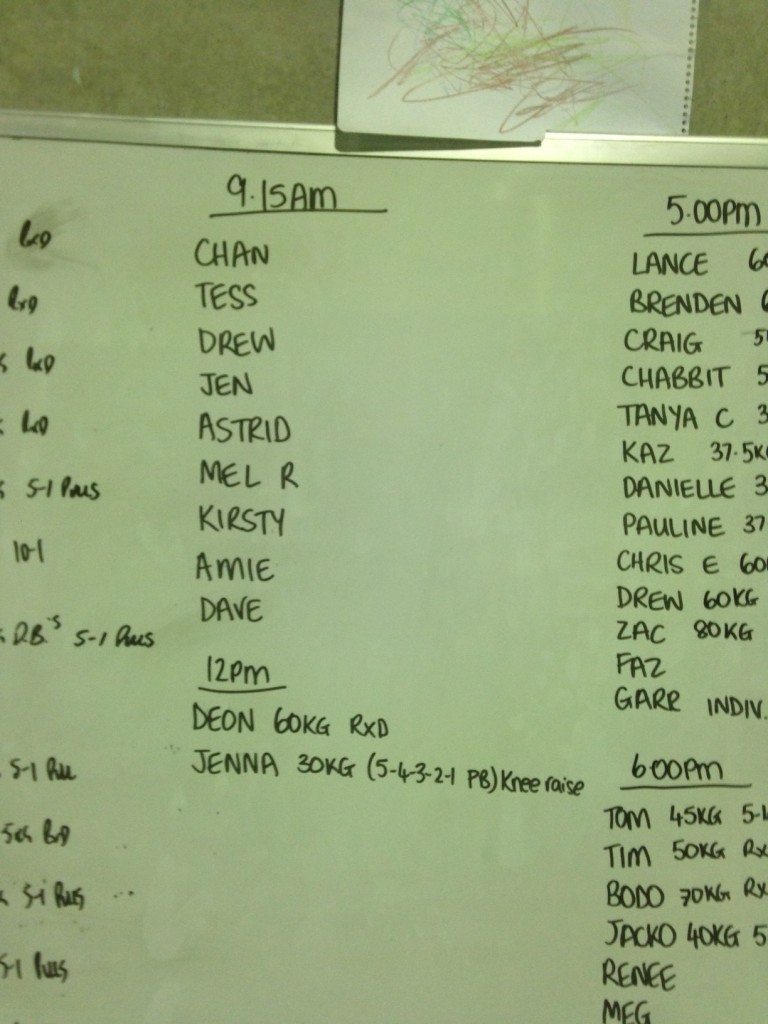 5-1
10-1
5-1
5-1
5-1
5-1
9.15AM
CHAN
TESS
DREW
JEN
ASTRID
MEL R
KIRSTY
AMIE
DAVE
12PM
DEON 60KG RxD
JENNA 30KG (5-4-3-2-1 PB) Knee raise
5.00PM
LANCE
BRENDEN
CRAIG
CHABBIT
TANYA C
KAZ 37.5KG
DANIELLE
PAULINE 37
CHRIS E 60
DREW 60KG
ZAC 80KG
FAZ
GARR INDIV.
6:00PM
TOM 45KG 5-1
TIM 50KG Rx
BODO 70KG Rx
JACKO 40KG 5
RENEE
MEG